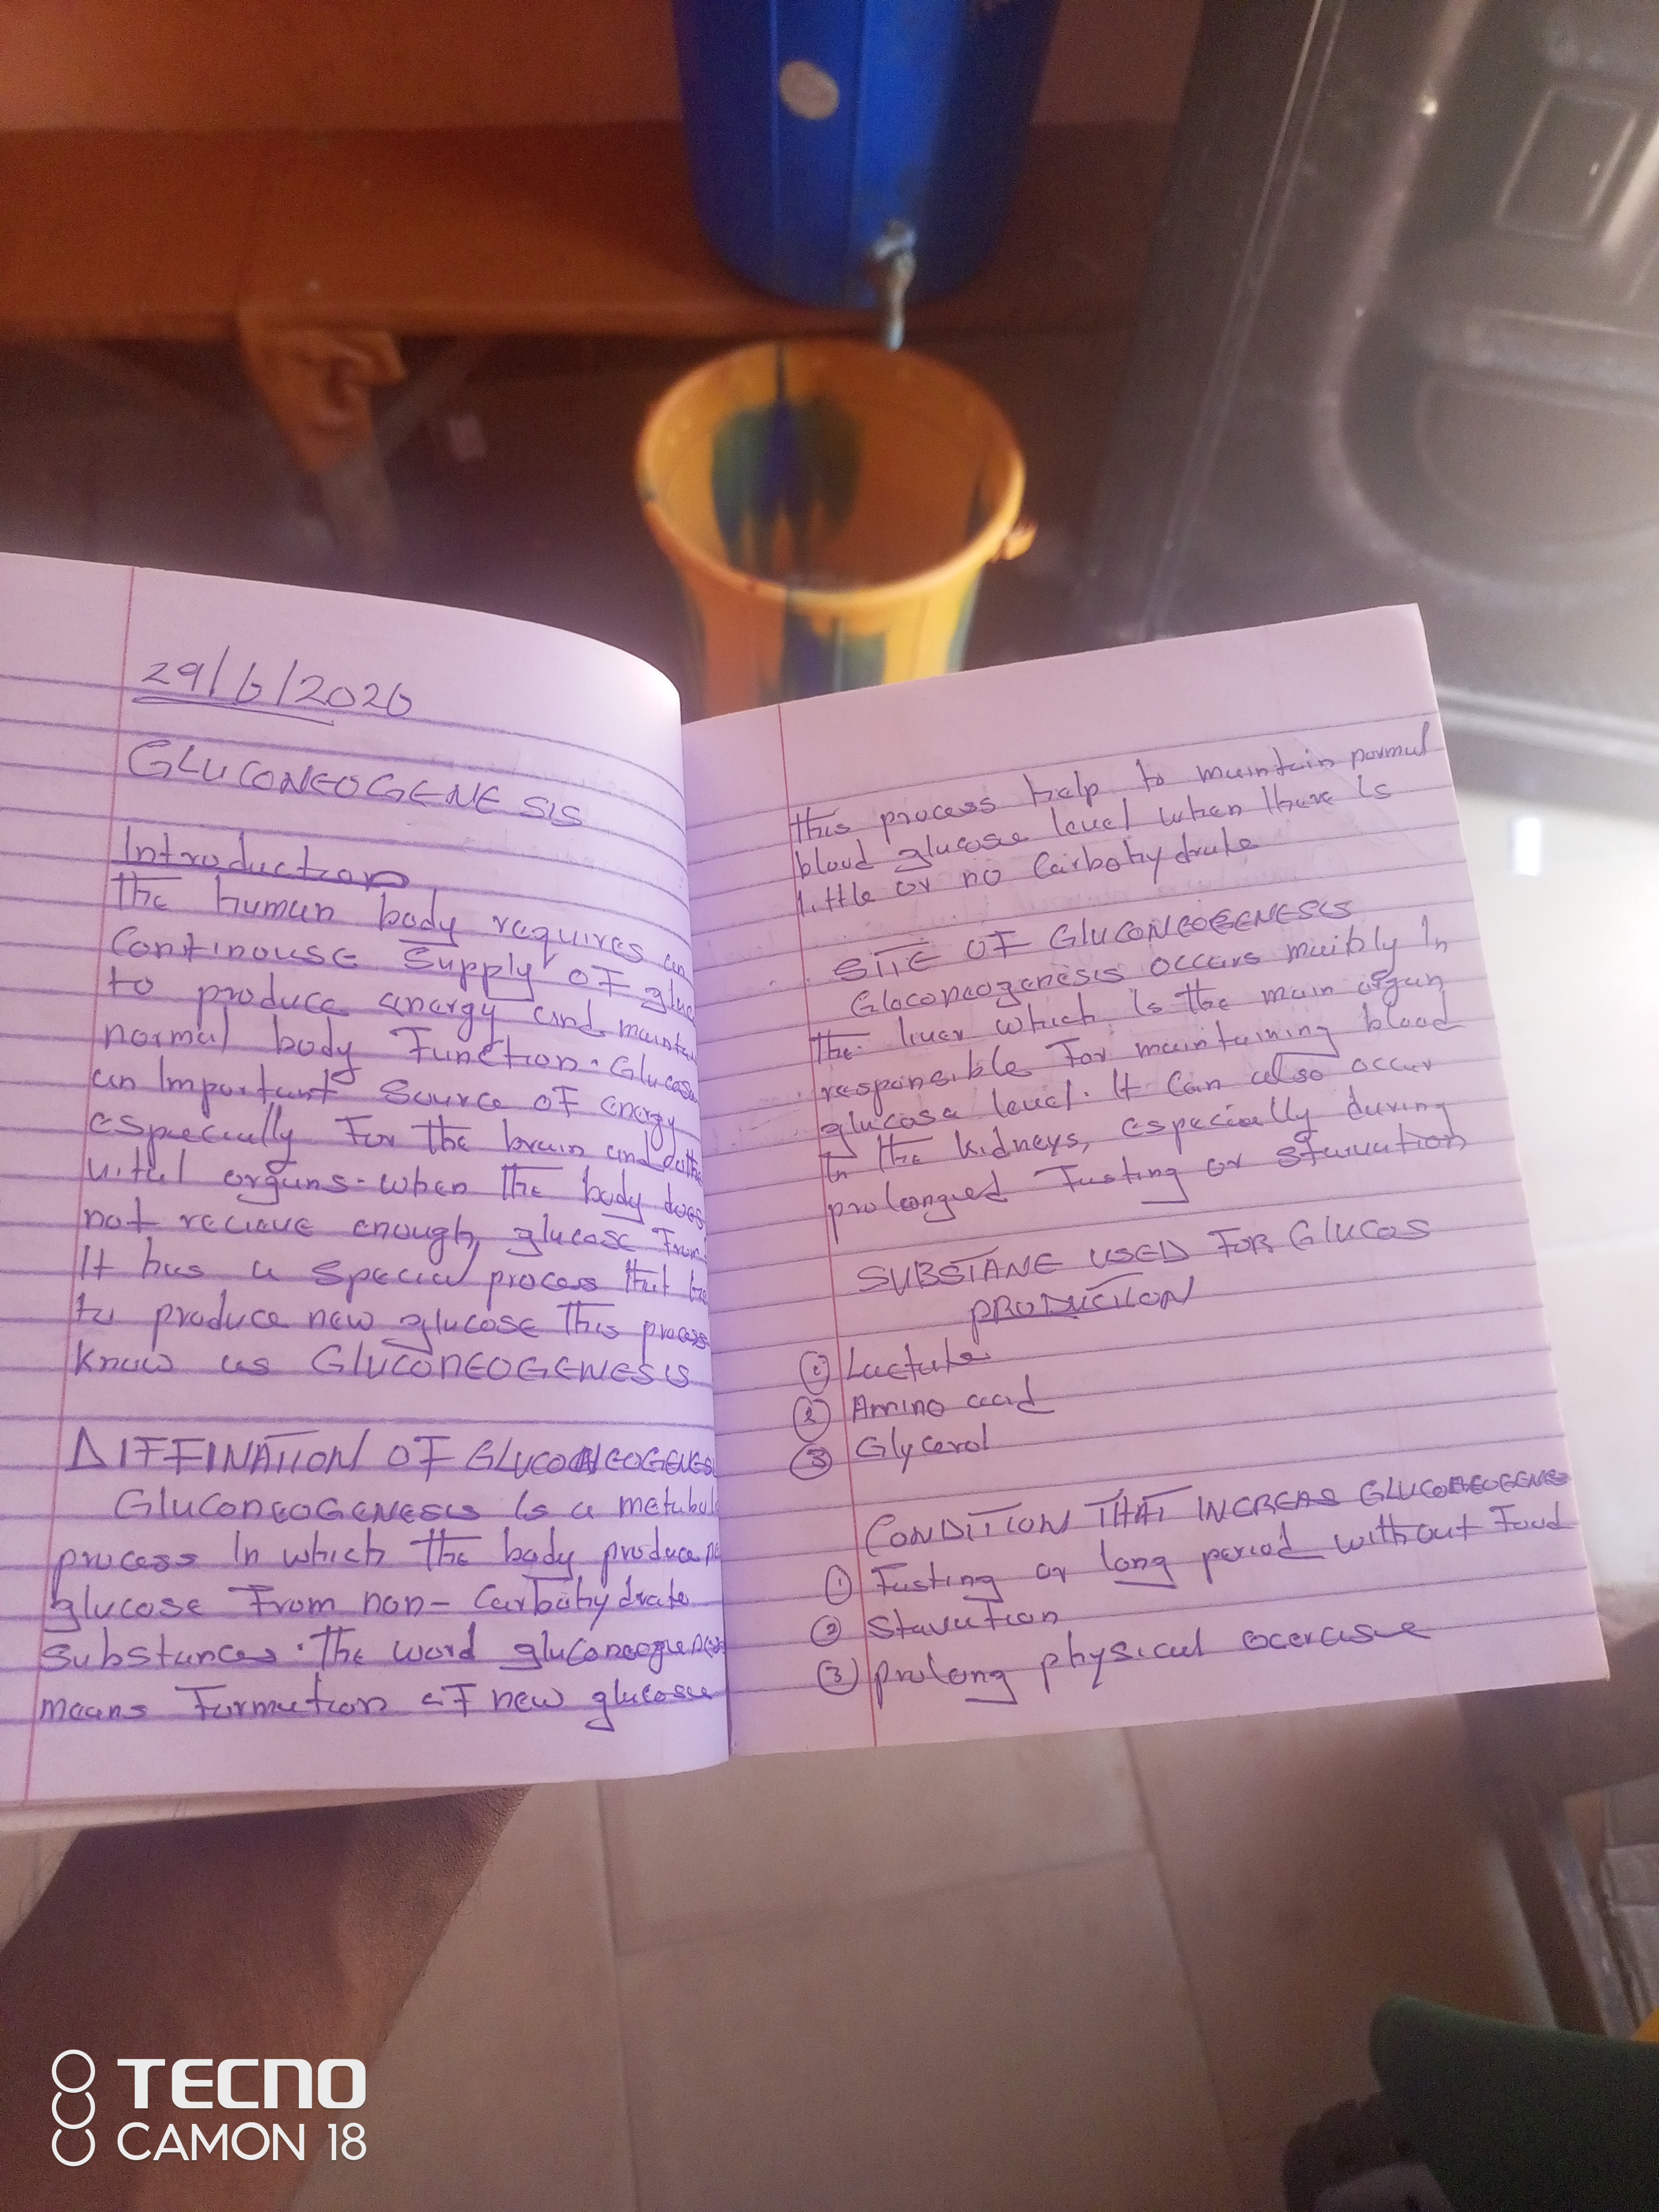 29/6/2026
GLUCONEOGENESIS
Introduction
The human body requires an
Continouse Supply OF gluc
to produce energy and mainta
normal body Function. Glucose
an Important Source OF energy
especially For the brain and othe
vital organs. when the body does
not recieve enough glucose From
It has a special proces that he
to produce new glucose This process
Know as GLUCONEOGENESIS
DIFFINATION OF GLUCONEOGENESI
GLUCONEOGENESIS Is a metabol
process In which the body produce ne
glucose From non-Carbohydrate
Substances. The word gluconeogenesis
means Formation of new glucose
this process help to maintain normal
blood glucose level when there is
little or no Carbohydrate
SITE OF GLUCONEOGENESIS
Gloconeogenesis occurs mainly In
the liver which Is the main organ
responsible For maintaining blood
glucose level. It Can also occur
In the kidneys, especially during
prolongued Fasting or starvation
SUBSTANE USED FOR GLUCOS
PRODUCTION
① Lactate
② Amino acid
③ Glycerol
CONDITION THAT INCREAS GLUCONEOGENES
① Fasting or long period without Food
② Stavation
③ prolong physical excercise
TECNO
CAMON 18